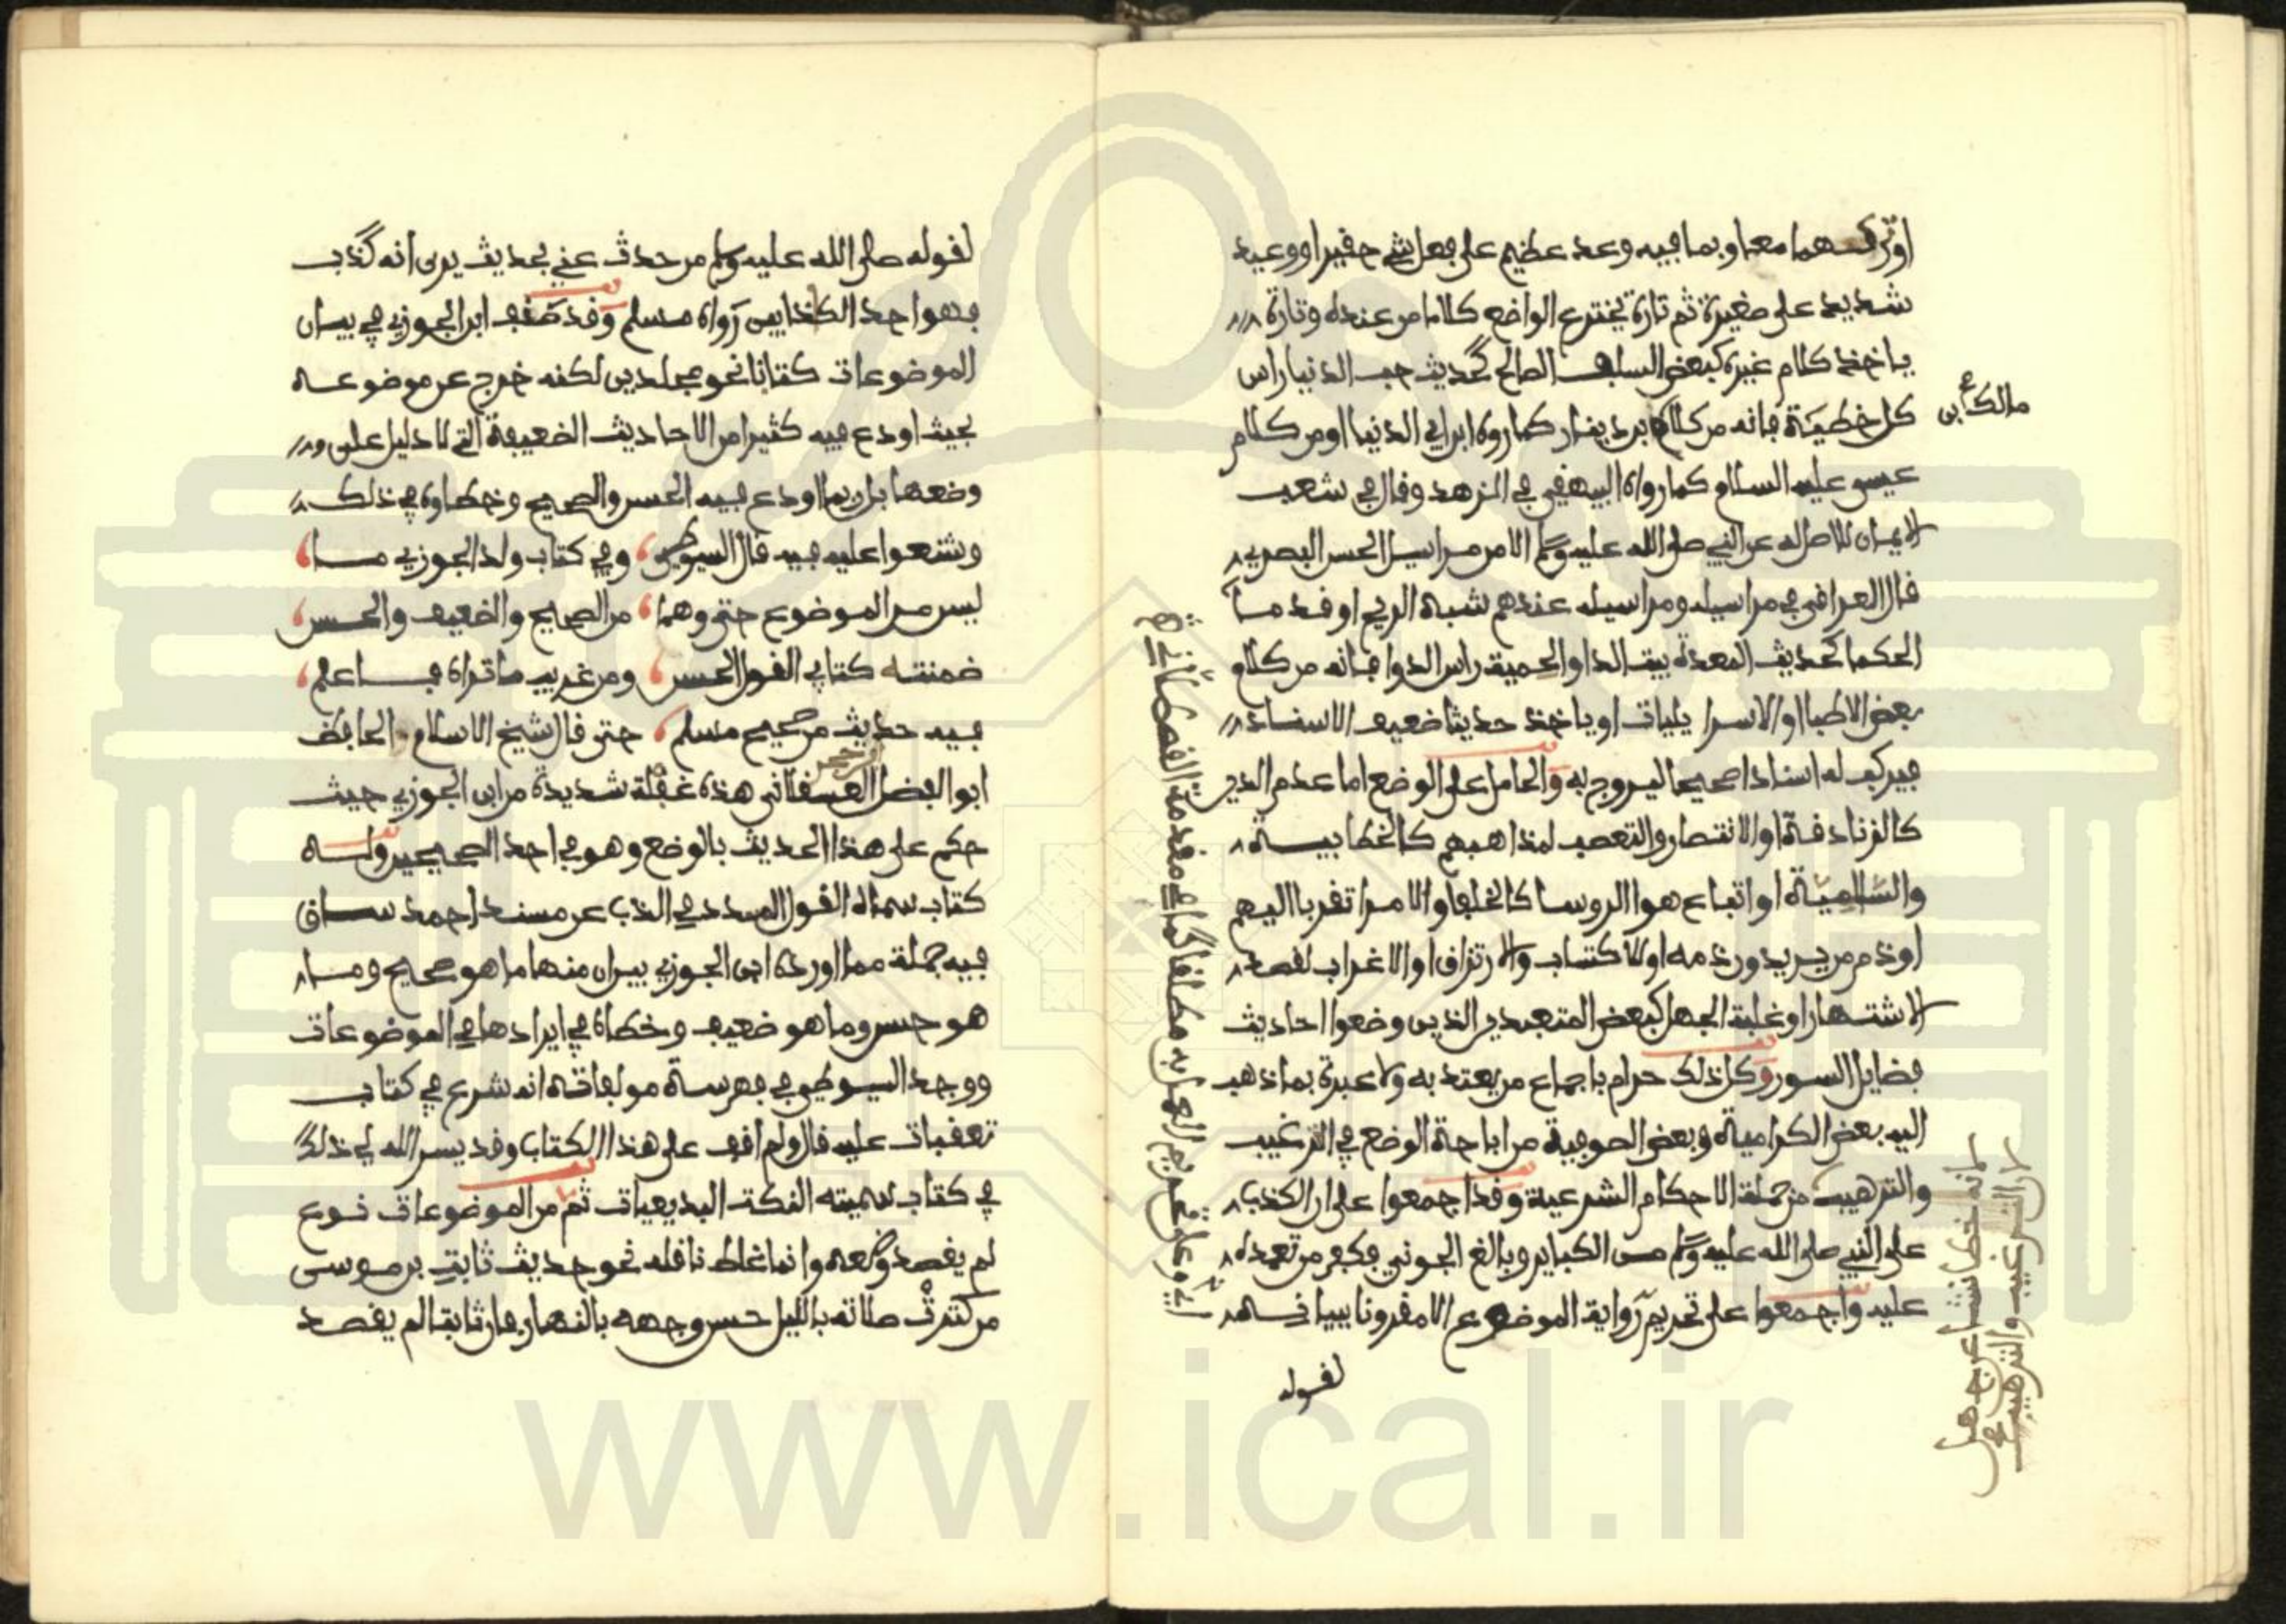 او تركهما معا وبما فيه وعد عظيم على فعل شيء حقير او وعيد
شديد على صغيرة ثم تارة يخترع الواضع كلاما من عنده وتارة
ياخذ كلام غيره كبعض السلف الصالح كحديث حب الدنيا راس
كل خطيئة فانه من كلام بن دينار كما رواه ابن ابي الدنيا او من كلام
مالك بن
عيسى عليه السلام كما رواه البيهقي في الزهد وقال في شعب
الايمان لا اصل له عن النبي صلى الله عليه وسلم الا من مراسيل الحسن البصري
قال العراقي في مراسيله ومراسيله عندهم شبه الريح او قدما
الحكما كحديث المعدة بيت الدا والحمية راس الدوا فانه من كلام
بعض الاطبا او الاسراييليات او ياخذ حديثا ضعيف الاسناد
فيركب له اسنادا صحيحا ليروج به والحامل على الوضع اما عدم الدين
كالزنادقة او الانتصار والتعصب لمذاهبهم كالخطابية
والسالمية او اتباع هوا الروسا كالخلفا والامرا تقربا اليهم
او ذم من يريدون ذمه او الاكتساب والارتزاق او الاغراب لقصد
الاشتهار او غلبة الجهل كبعض المتعبدين الذين وضعوا احاديث
فضايل السور وكل ذلك حرام باجماع من يعتد به ولا عبرة بما ذهب
اليه بعض الكرامية وبعض الصوفية من اباحة الوضع في الترغيب
والترهيب من جملة الاحكام الشرعية وقد اجمعوا على ان الكذب
على النبي صلى الله عليه وسلم من الكباير وبالغ الجويني فكفر من تعمده
عليه واجمعوا على تحريم رواية الموضوع الا مقرونا ببيانه
لقوله
لانه خطا نشا عن جهل
لان الترغيب والترهيب
لقوله صلى الله عليه وسلم من حدث عني بحديث يرى انه كذب
فهو احد الكذابين رواه مسلم وقد صنف ابن الجوزي في بيان
الموضوعات كتابا نحو مجلدين لكنه خرج عن موضوعه
بحيث اودع فيه كثيرا من الاحاديث الضعيفة التي لا دليل على
وضعها بل ربما اودع فيه الحسن والصحيح وخطاوه في ذلك
وشنعوا عليه فيه قال السيوطي وفي كتاب ولد الجوزي ما
ليس من الموضوع حتى وهما من الصحيح والضعيف والحسن
ضمنته كتابي القول الحسن ومن غريب ما تراه فاعلم
فيه حديث من صحيح مسلم حتى قال شيخ الاسلام الحافظ
ابو الفضل العسقلاني هذه غفلة شديدة من ابن الجوزي حيث
حكم على هذا الحديث بالوضع وهو في احد الصحيحين وله
كتاب سماه القول المسدد في الذب عن مسند احمد ساق
فيه جملة مما اورده ابن الجوزي بين ان منها ما هو صحيح وما
هو حسن وما هو ضعيف وخطاه في ايرادها في الموضوعات
ووجد السيوطي في فهرسة مولفاته انه شرع في كتاب
تعقبات عليه قال ولم اقف على هذا الكتاب وقد يسر الله لي ذلك
في كتاب سميته النكت البديعيات ثم من الموضوعات نوع
لم يقصد وضعه وانما غلط ناقله نحو حديث ثابت بن موسى
من كثرت صلاته بالليل حسن وجهه بالنهار فان ثابتا لم يقصد